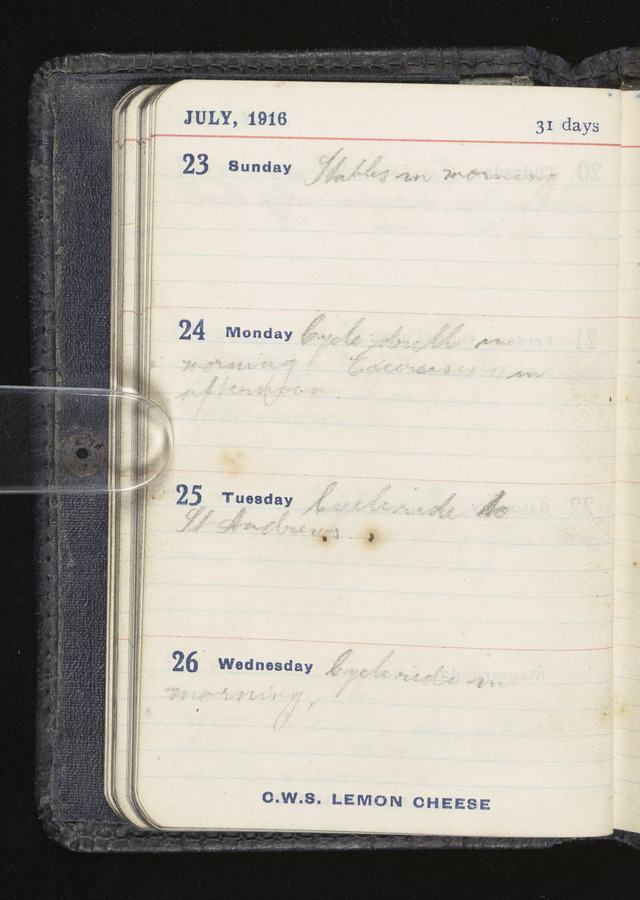 JULY, 1916
31 days
23 Sunday Stables in morning
24 Monday Cycle drill in
morning Excercising in
afternoon.
25 Tuesday Cycle ride to
St Andrews.
26 Wednesday Cycle ride in
morning.
C.W.S. LEMON CHEESE